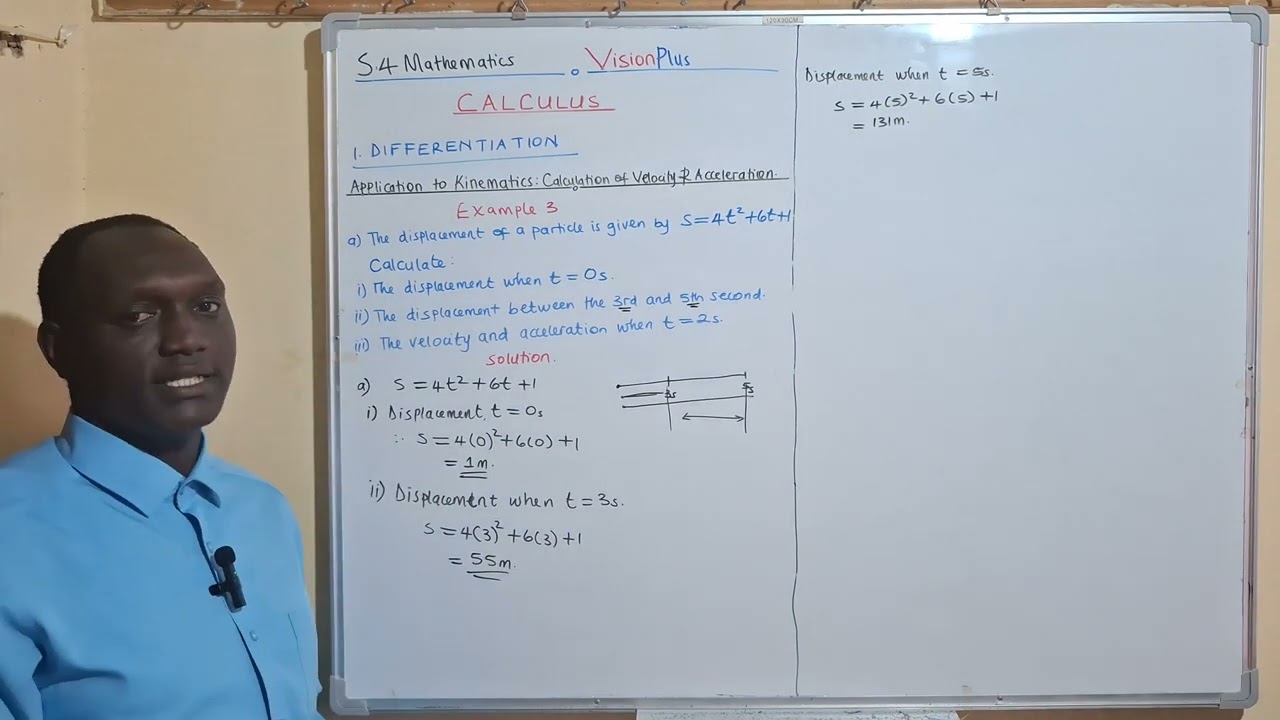 120X90CM
S.4 Mathematics VisionPlus
CALCULUS
1. DIFFERENTIATION
Application to Kinematics: Calculation of Velocity & Acceleration.
Example 3
a) The displacement of a particle is given by S=4t²+6t+1
Calculate:
i) The displacement when t=0s.
ii) The displacement between the 3rd and 5th second.
iii) The velocity and acceleration when t=2s.
solution.
a) S=4t²+6t+1
3s 5s
i) Displacement, t=0s
∴ S=4(0)²+6(0)+1
= 1m.
ii) Displacement when t=3s.
S=4(3)²+6(3)+1
= 55m.
Displacement when t=5s.
S=4(5)²+6(5)+1
= 131m.